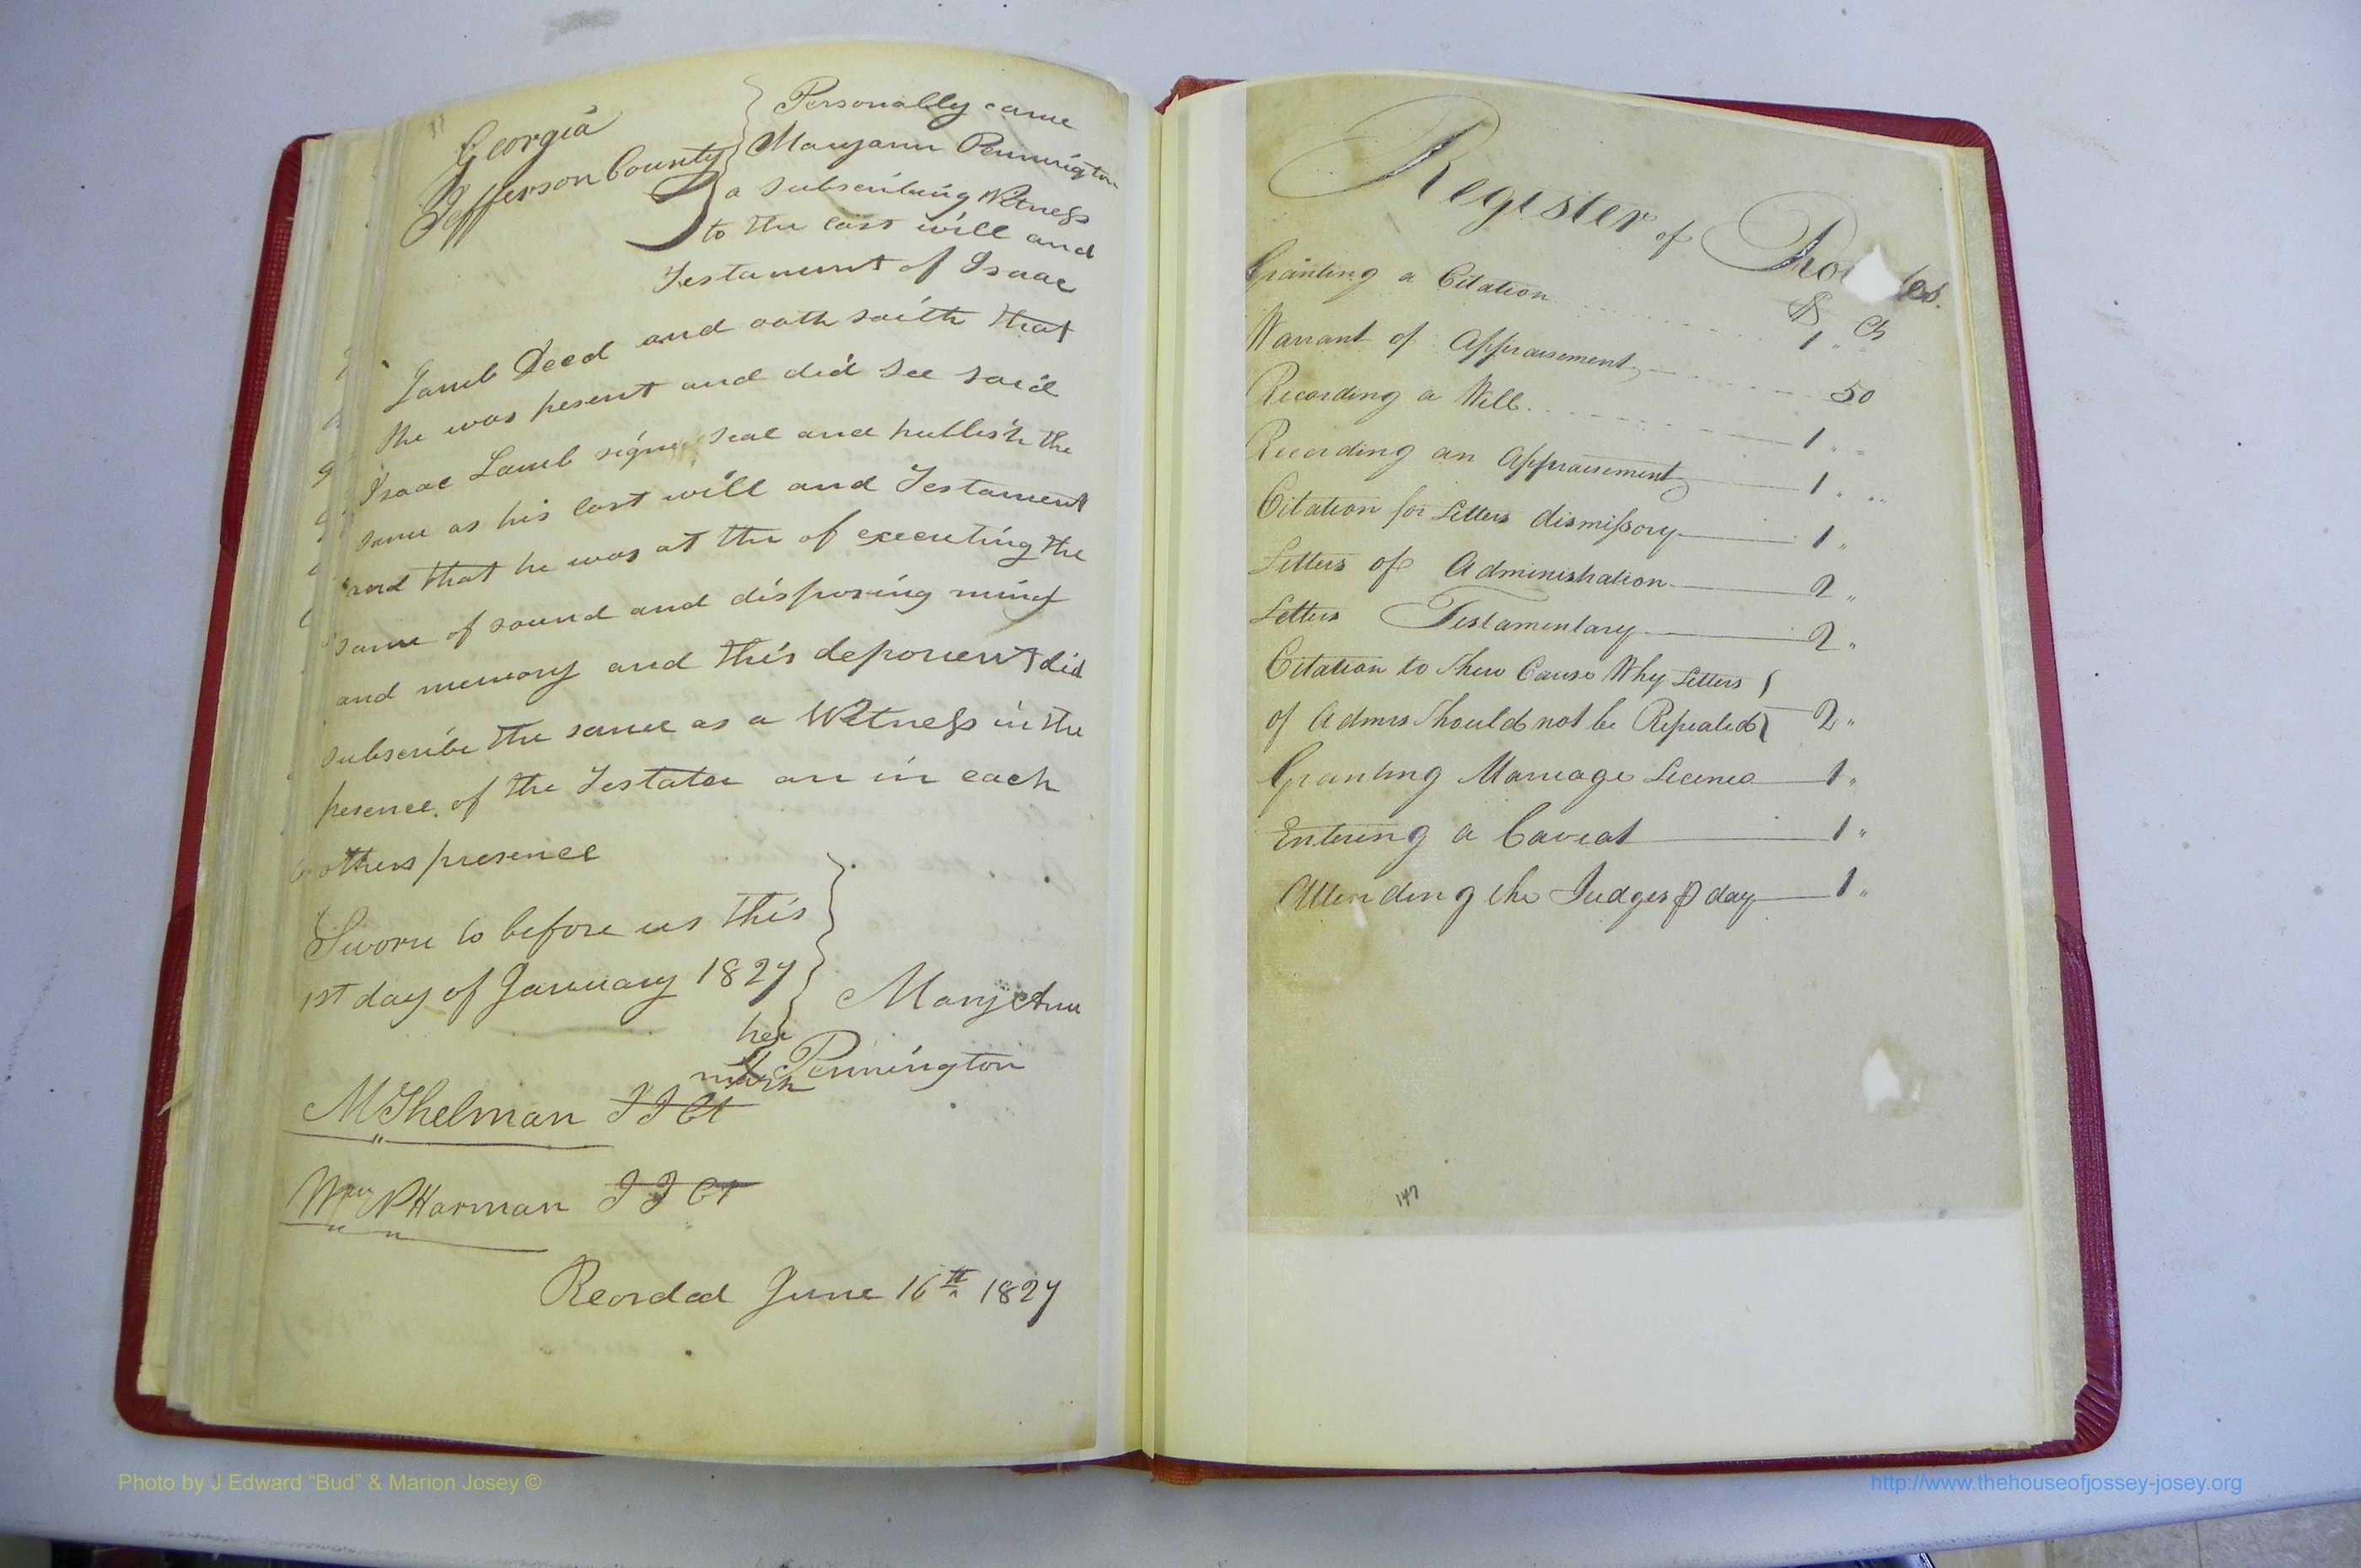 11
Georgia
Jefferson County
Personally came
Maryann Pennington
a subscribing Witness
to the last will and
Testament of Isaac
Lamb Deed and oath saith that
she was present and did see said
Isaac Lamb signe seal and publish the
same as his last will and Testament
and that he was at the of executing the
same of sound and disposing mind
and memory and this deponent did
subscribe the same as a Witness in the
presence of the Testator an in each
others presence
Sworn to before us this
1st day of January 1827
Mary Ann
her
X Pennington
mark
M Shelman J I Ct
Wm N Harman J I Ct
Recorded June 16th 1827
Register of
$ Cts
Granting a Citation 1 "
Warrant of Appraisement 50
Recording a Will 1 "
Recording an Appraisement 1 "
Citation for Letters dismissory 1 "
Letters of Administration 2 "
Letters Testamentary 2 "
Citation to Shew Cause Why Letters
of Admrs Should not be Repealed 2 "
Granting Marriage Licence 1 "
Entering a Caveat 1 "
Attending the Judges p day 1 "
147
Photo by J Edward “Bud” & Marion Josey ©
http://www.thehouseofjossey-josey.org